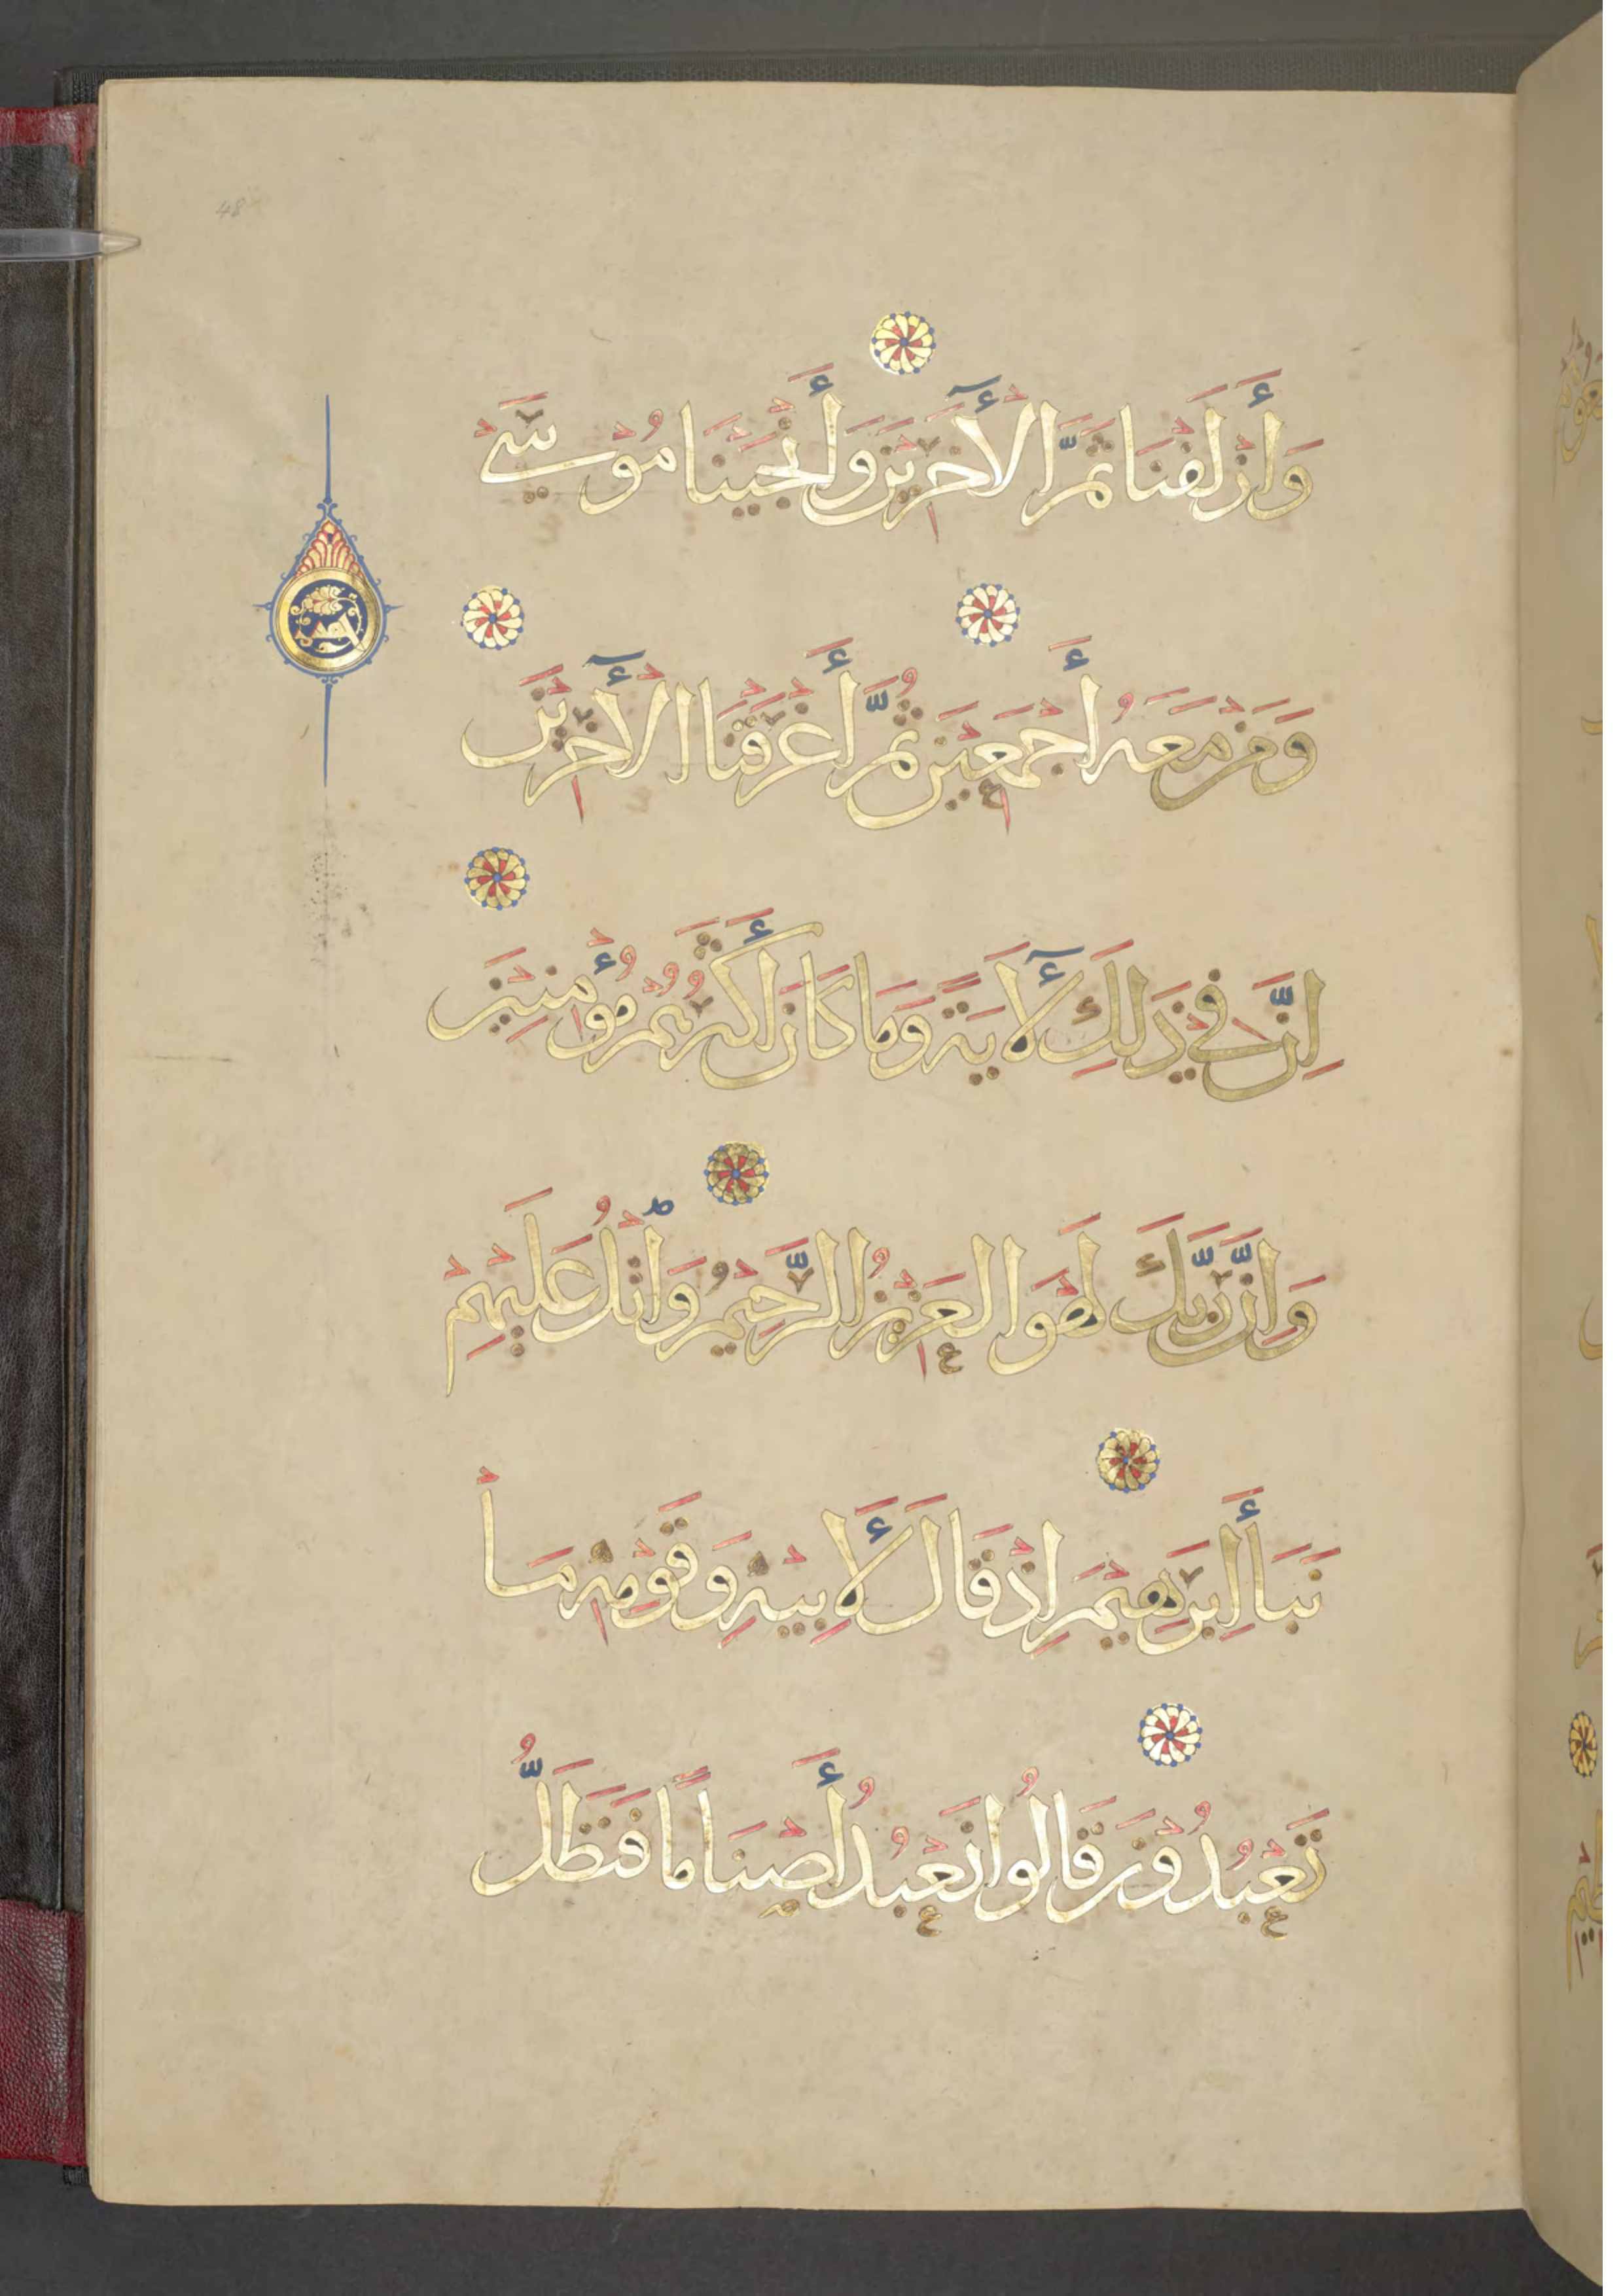 48
وَأَزْلَفْنَا ثَمَّ الْآخَرِينَ وَأَنْجَيْنَا مُوسَى
وَمَنْ مَعَهُ أَجْمَعِينَ ثُمَّ أَغْرَقْنَا الْآخَرِينَ
إِنَّ فِي ذَلِكَ لَآيَةً وَمَا كَانَ أَكْثَرُهُمْ مُؤْمِنِينَ
وَإِنَّ رَبَّكَ لَهُوَ الْعَزِيزُ الرَّحِيمُ وَاتْلُ عَلَيْهِمْ
نَبَأَ إِبْرَهِيمَ إِذْ قَالَ لِأَبِيهِ وَقَوْمِهِ مَا
تَعْبُدُونَ قَالُوا نَعْبُدُ أَصْنَامًا فَنَظَلُّ